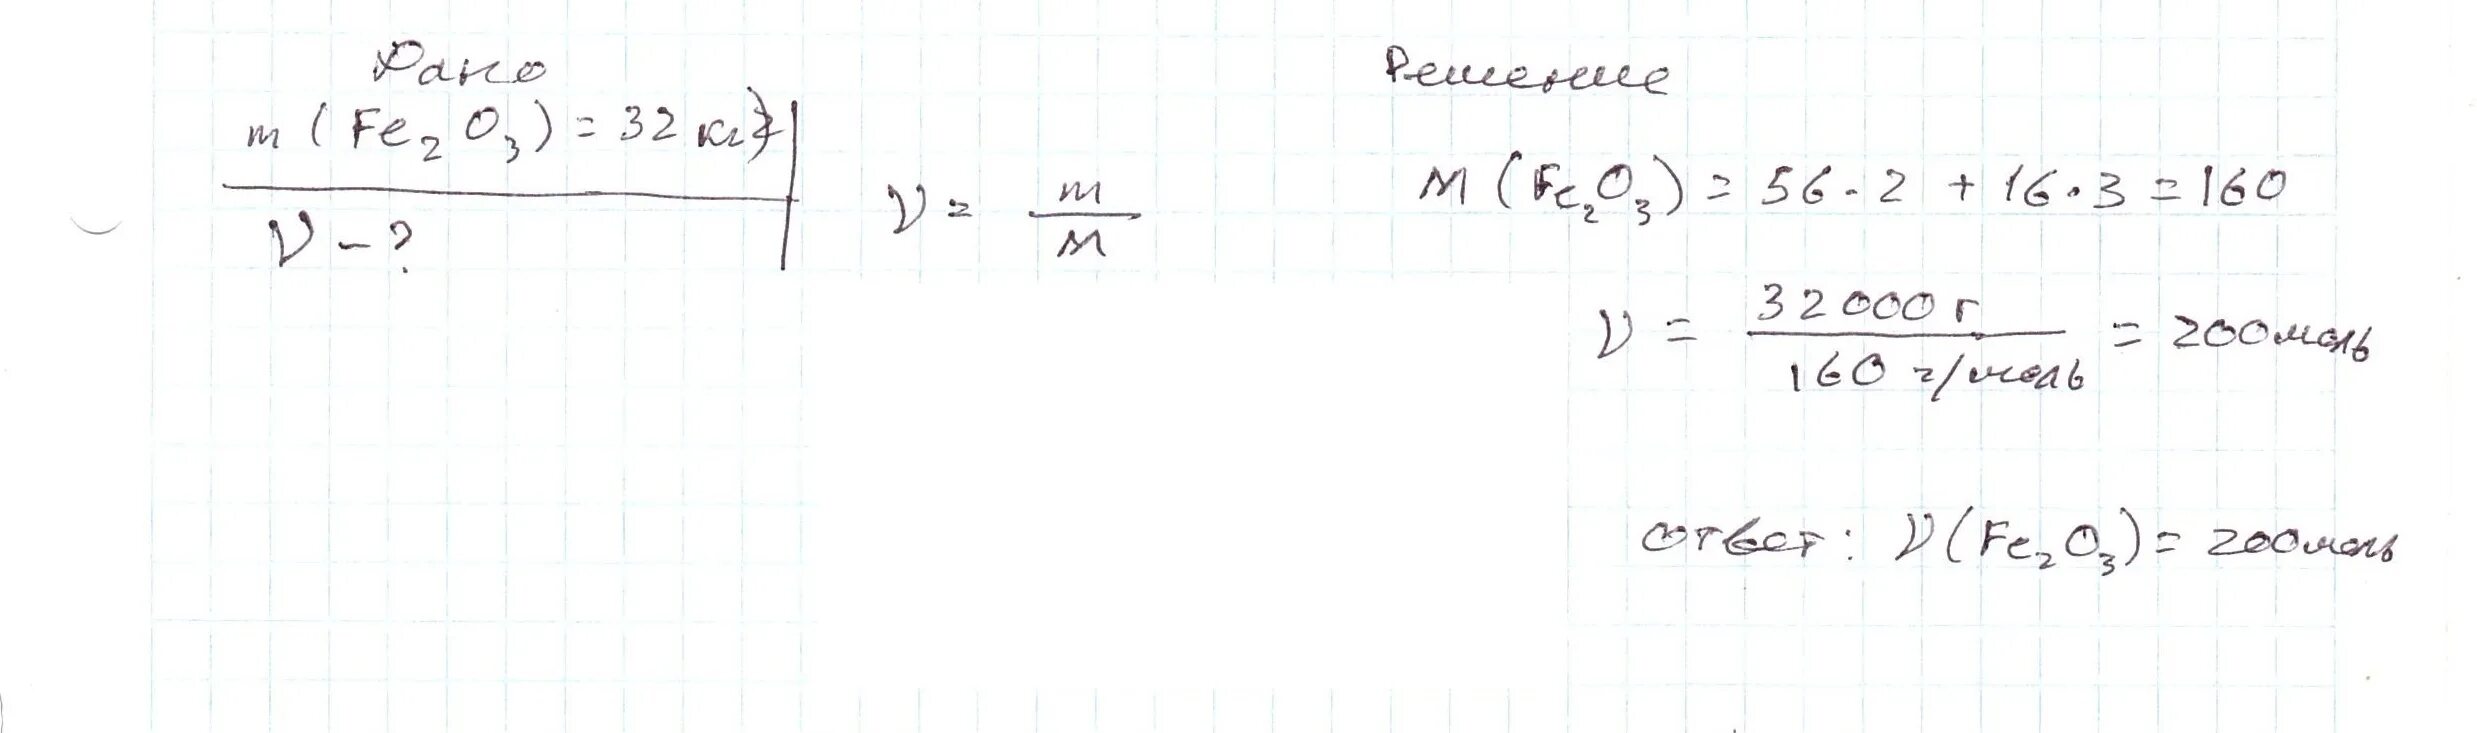 Дано
m (Fe₂O₃) = 32 кг
ν - ?
ν = m / M
Решение
M (Fe₂O₃) = 56 · 2 + 16 · 3 = 160
ν = 32000 г / 160 г/моль = 200 моль
ответ: ν (Fe₂O₃) = 200 моль